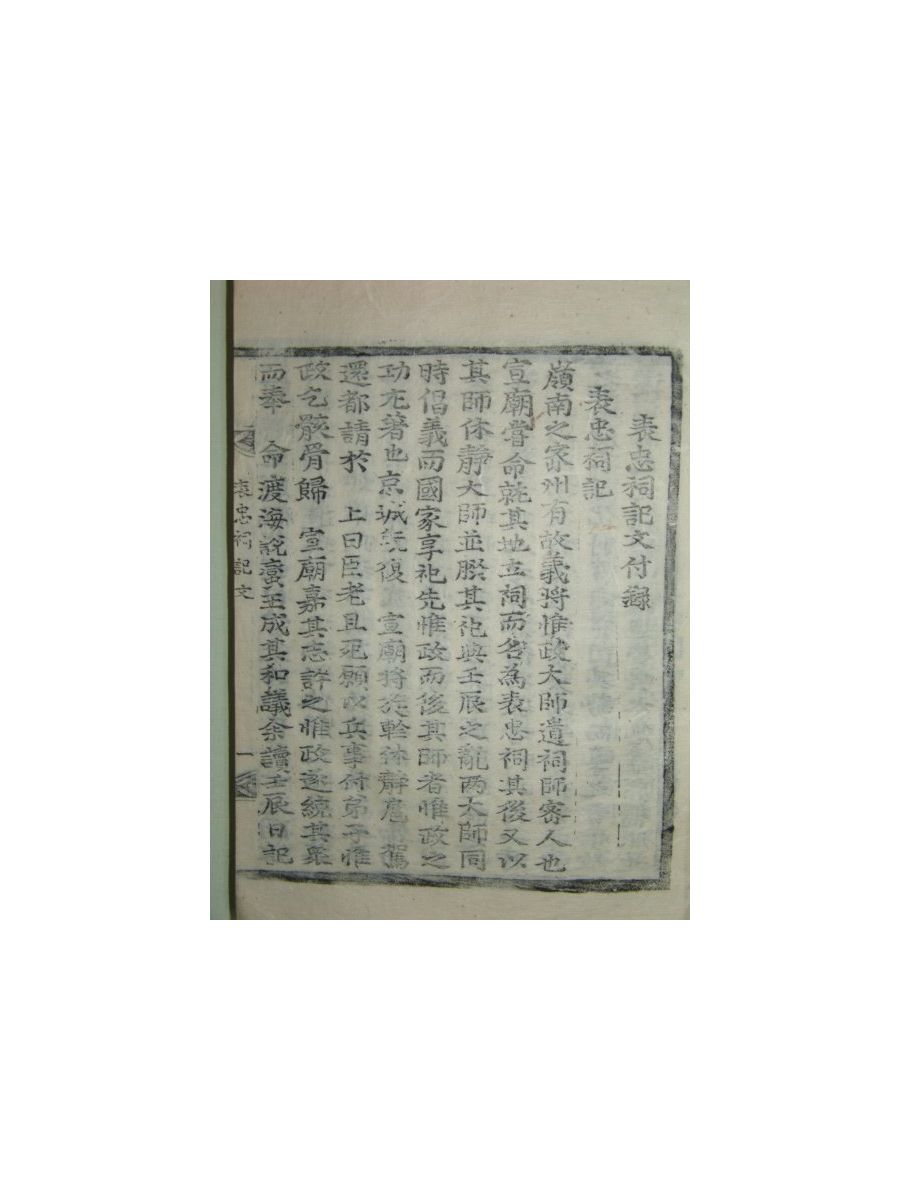 表忠祠記文付錄
表忠祠記
嶺南之密州有故義將惟政大師遺祠師密人也
宣廟嘗命就其地立祠而名為表忠祠其後又以
其師休靜大師並腏其祀與壬辰之龍兩大師同
時倡義而國家享祀先惟政而後其師者惟政之
功尤著也京城旣復 宣廟將旋軫休靜扈 駕
還都請於 上曰臣老且死願以兵事付弟子惟
政乞骸骨歸 宣廟嘉其志許之惟政遂統其衆
而奉 命渡海說蠻王成其和議余讀壬辰日記
表忠祠記文 一